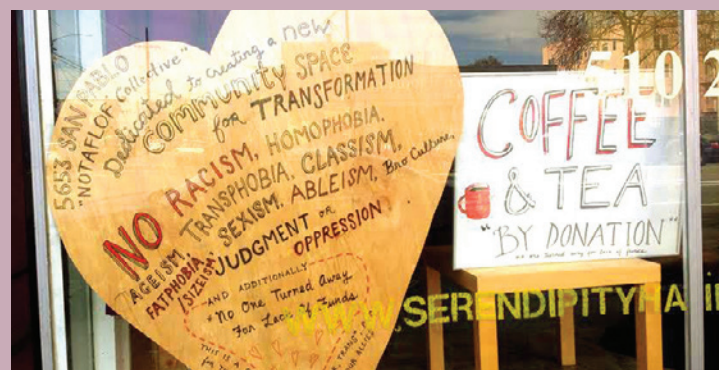 5653 SAN PABLO
"NOTAFLOF Collective"
Dedicated to creating a new
COMMUNITY SPACE
for TRANSFORMATION
NO RACISM, HOMOPHOBIA,
TRANSPHOBIA, CLASSISM,
AGEISM, SEXISM, ABLEISM, Bro Culture,
FATPHOBIA/
SIZEISM,
JUDGMENT or
OPPRESSION
AND ADDITIONALLY
"No One Turned Away
For Lack of Funds
THIS IS A
COFFEE
& TEA
"BY DONATION"
510 2
WWW.SERENDIPITYHA